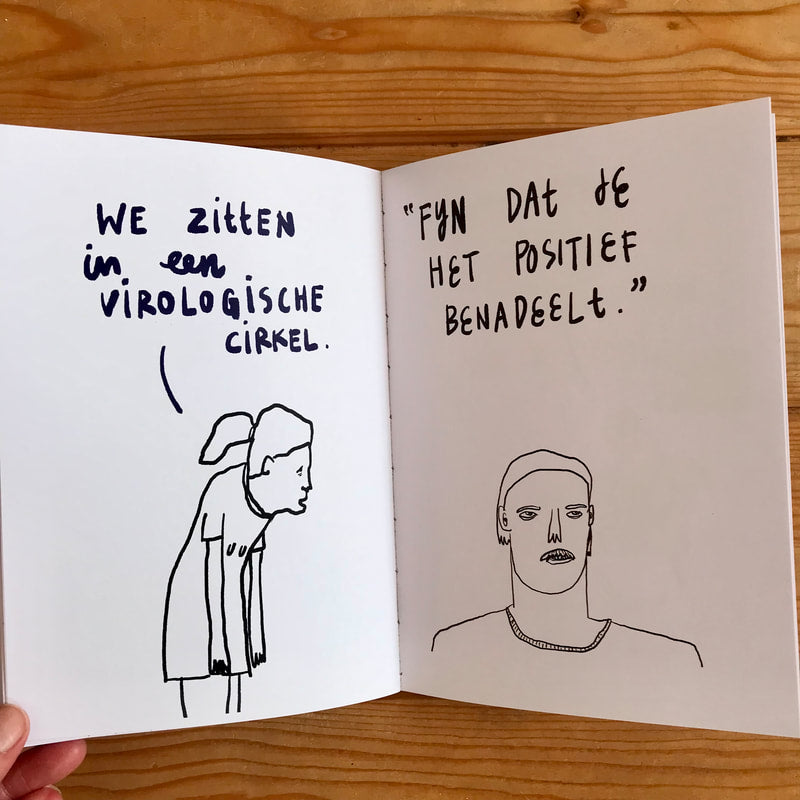 WE zittEN
in een
VIROLOGISCHE
CIRKEL.
"FYN DAt JE
HET POSITIEF
BENADEELt."